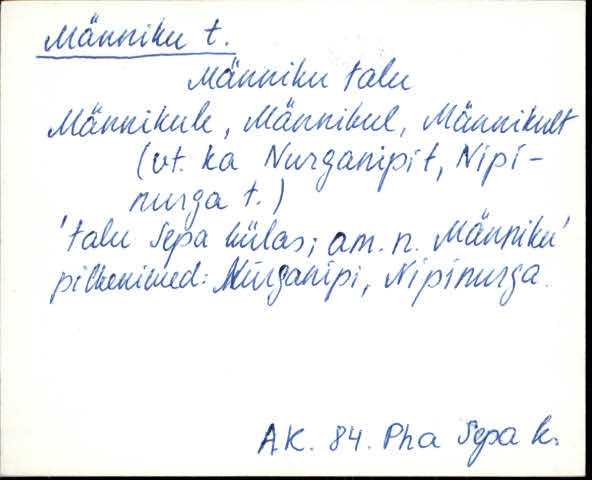 Männiku t.
Männiku talu
Männikule, Männikul, Männikult
(vt. ka Nurganipi t, Nipi-
nurga t.)
'talu Sepa külas; am. n. Männiku'
pilkenimed: Nurganipi, Nipinurga.
A.K. 84. Pha Sepa k.